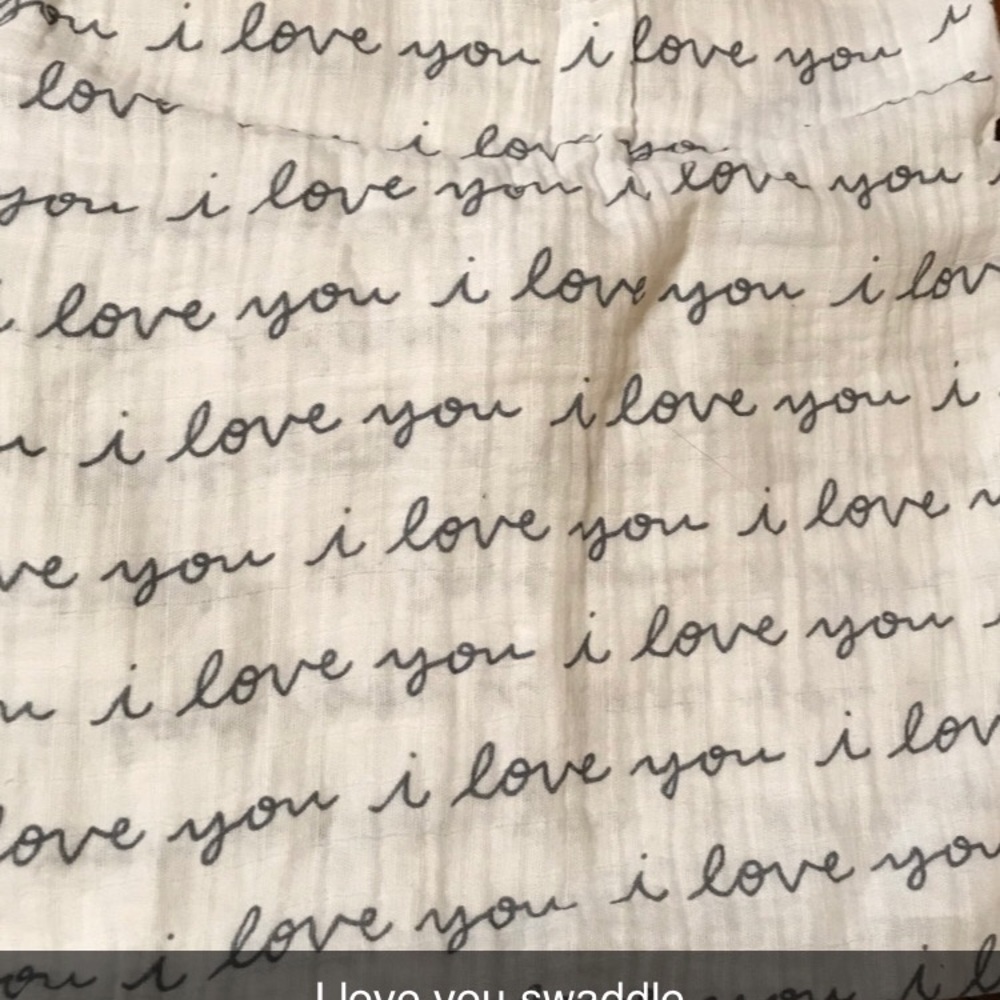 you i love you i love you i
love i love you
you i love you i love you
i love you i love you i lov
i love you i love you i
ve you i love you i love
u i love you i love you
love you i love you i lov
i love you i love you
ou i i l
I love you swaddle